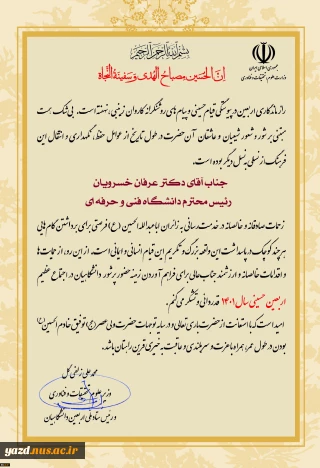 بسم الله الرحمن الرحیم
إنّ الحسین مصباح الهدی و سفینة النجاة
جمهوری اسلامی ایران
وزارت علوم، تحقیقات و فناوری
راز ماندگاری اربعین در پیوستگی قیام حسینی و پیام های روشنگرانه کاروان زینبی، نهفته است. بی شک سنت
مبتنی بر شور و شعور شیعیان و عاشقان آن حضرت در طول تاریخ از عوامل حفظ، نگهداری و انتقال این
فرهنگ از نسلی به نسل دیگر بوده است.
جناب آقای دکتر عرفان خسرویان
رئیس محترم دانشگاه فنی و حرفه ای
زحمات صادقانه و خالصانه در خدمت رسانی به زائران اباعبدالله الحسین (ع) فرصتی برای برداشتن گام هایی
هر چند کوچک در پاسداشت این واقعه بزرگ و تکریم این قیام انسانی و الهی است. از این رو، از حمایت ها
و اقدامات خالصانه و ارزشمند جناب عالی برای فراهم آوردن زمینه حضور پرشور دانشگاهیان در اجتماع عظیم
اربعین حسینی سال ۱۴۰۱ قدردانی و تشکر می کنم.
امید است که با استعانت از حضرت باری تعالی و در سایه توجهات حضرت ولی عصر (عج) توفیق خادم الحسین (ع)
بودن در طول عمر، همراه با عزت و سربلندی و عاقبت به خیری قرین راهتان باشد.
محمد علی زلفی گل
وزیر علوم، تحقیقات و فناوری
و رئیس ستاد ملی اربعین دانشگاهیان
yazd.nus.ac.ir